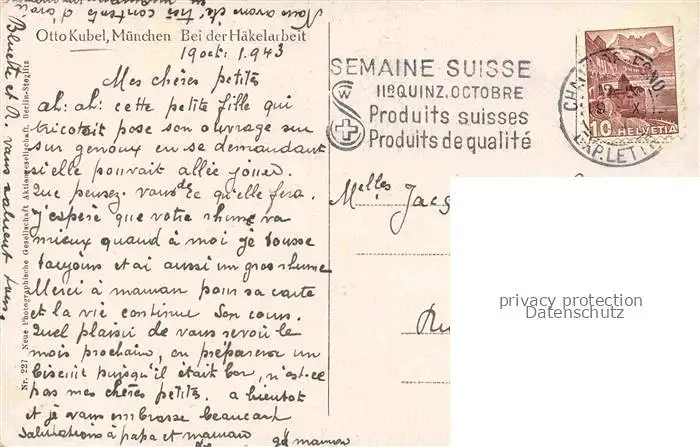 Nous avons été très contents d'avoir
Otto Kubel, München Bei der Häkelarbeit
19 oct: 1.943
Mes chères petits
ah: ah: cette petite fille qui
tricotait pose son ouvrage sur
sur genoux en se demandant
si elle pourrait allée jouer.
Que pensez. vous de ce qu'elle fera.
j'espère que votre rhume va
mieux quand à moi je tousse
toujours et ai aussi un gros rhume
Merci à maman pour sa carte
et la vie continue son cours.
Quel plaisir de vous revoir le
mois prochain, on préparera un
biscuit puisqu'il était bon, n'est-ce
pas mes chères petits. a bientot
et je vous embrasse beaucoup
Salutations à papa et maman
gd maman
Bluette et R. vous saluent tous.
Nr. 227 Neue Photographische Gesellschaft Aktiengesellschaft Berlin-Steglitz
SEMAINE SUISSE
IIe QUINZ. OCTOBRE
Produits suisses
Produits de qualité
CHAUX-DE-FOND
EXP. LETT
10 HELVETIA
Melles Jacq
Ru
privacy protection
www.oldthing.com